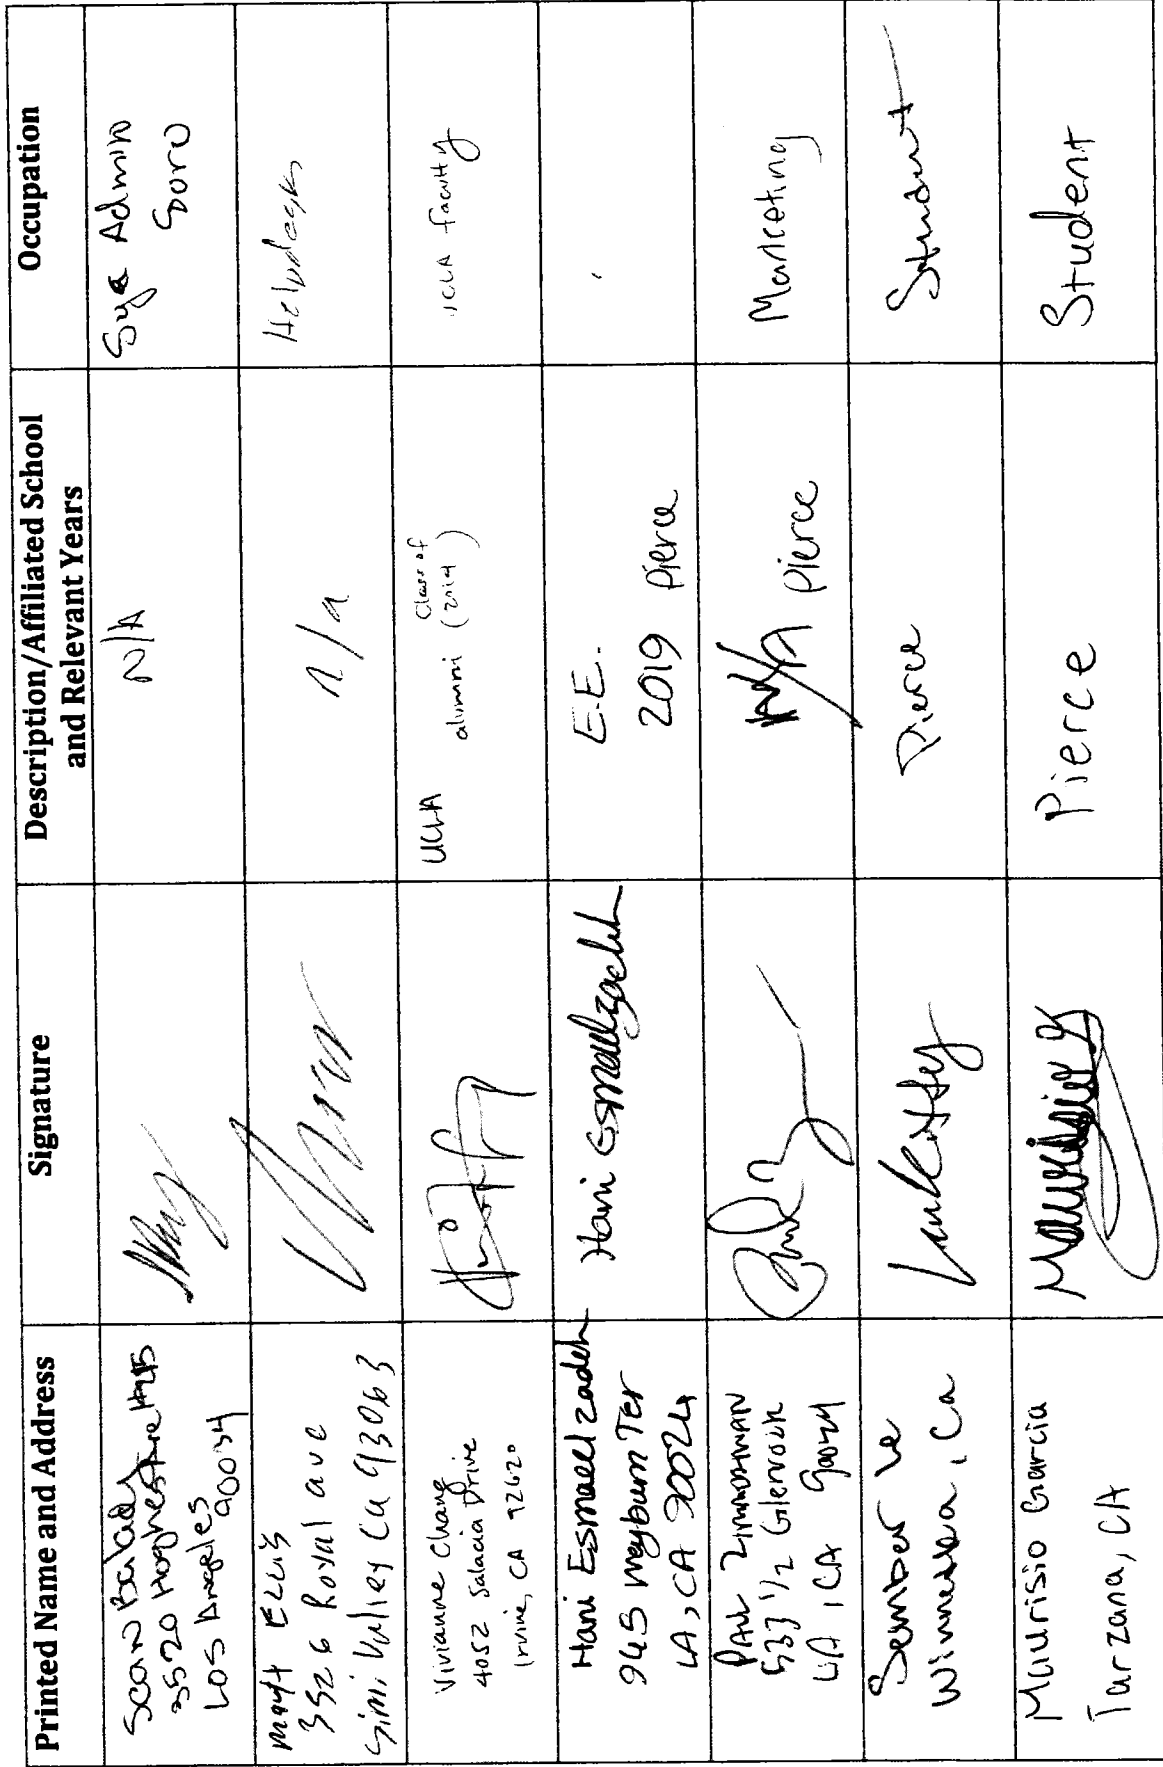 Printed Name and Address
Signature
Description/Affiliated School
and Relevant Years
Occupation
3520
Los Angeles
90034
N/A
Admin
3526 Royal ave
Simi Valley Ca 93063
n/a
Helpdesk
Vivianne Chang
4052 Salacia Drive
Irvine, CA 92620
UCLA alumni (2014)
Class of
UCLA faculty
Hani Esmaeelzadeh
945 weyburn Ter
LA, CA 90024
Hani Esmaeelzadeh
E.E.
2019 Pierce
Paul Zimmerman
533 1/2 Glenrock
LA, CA 90024
Pierce
Marketing
Le
Winnetka, Ca
Pierce
Student
Maurisio Garcia
Tarzana, CA
Pierce
Student